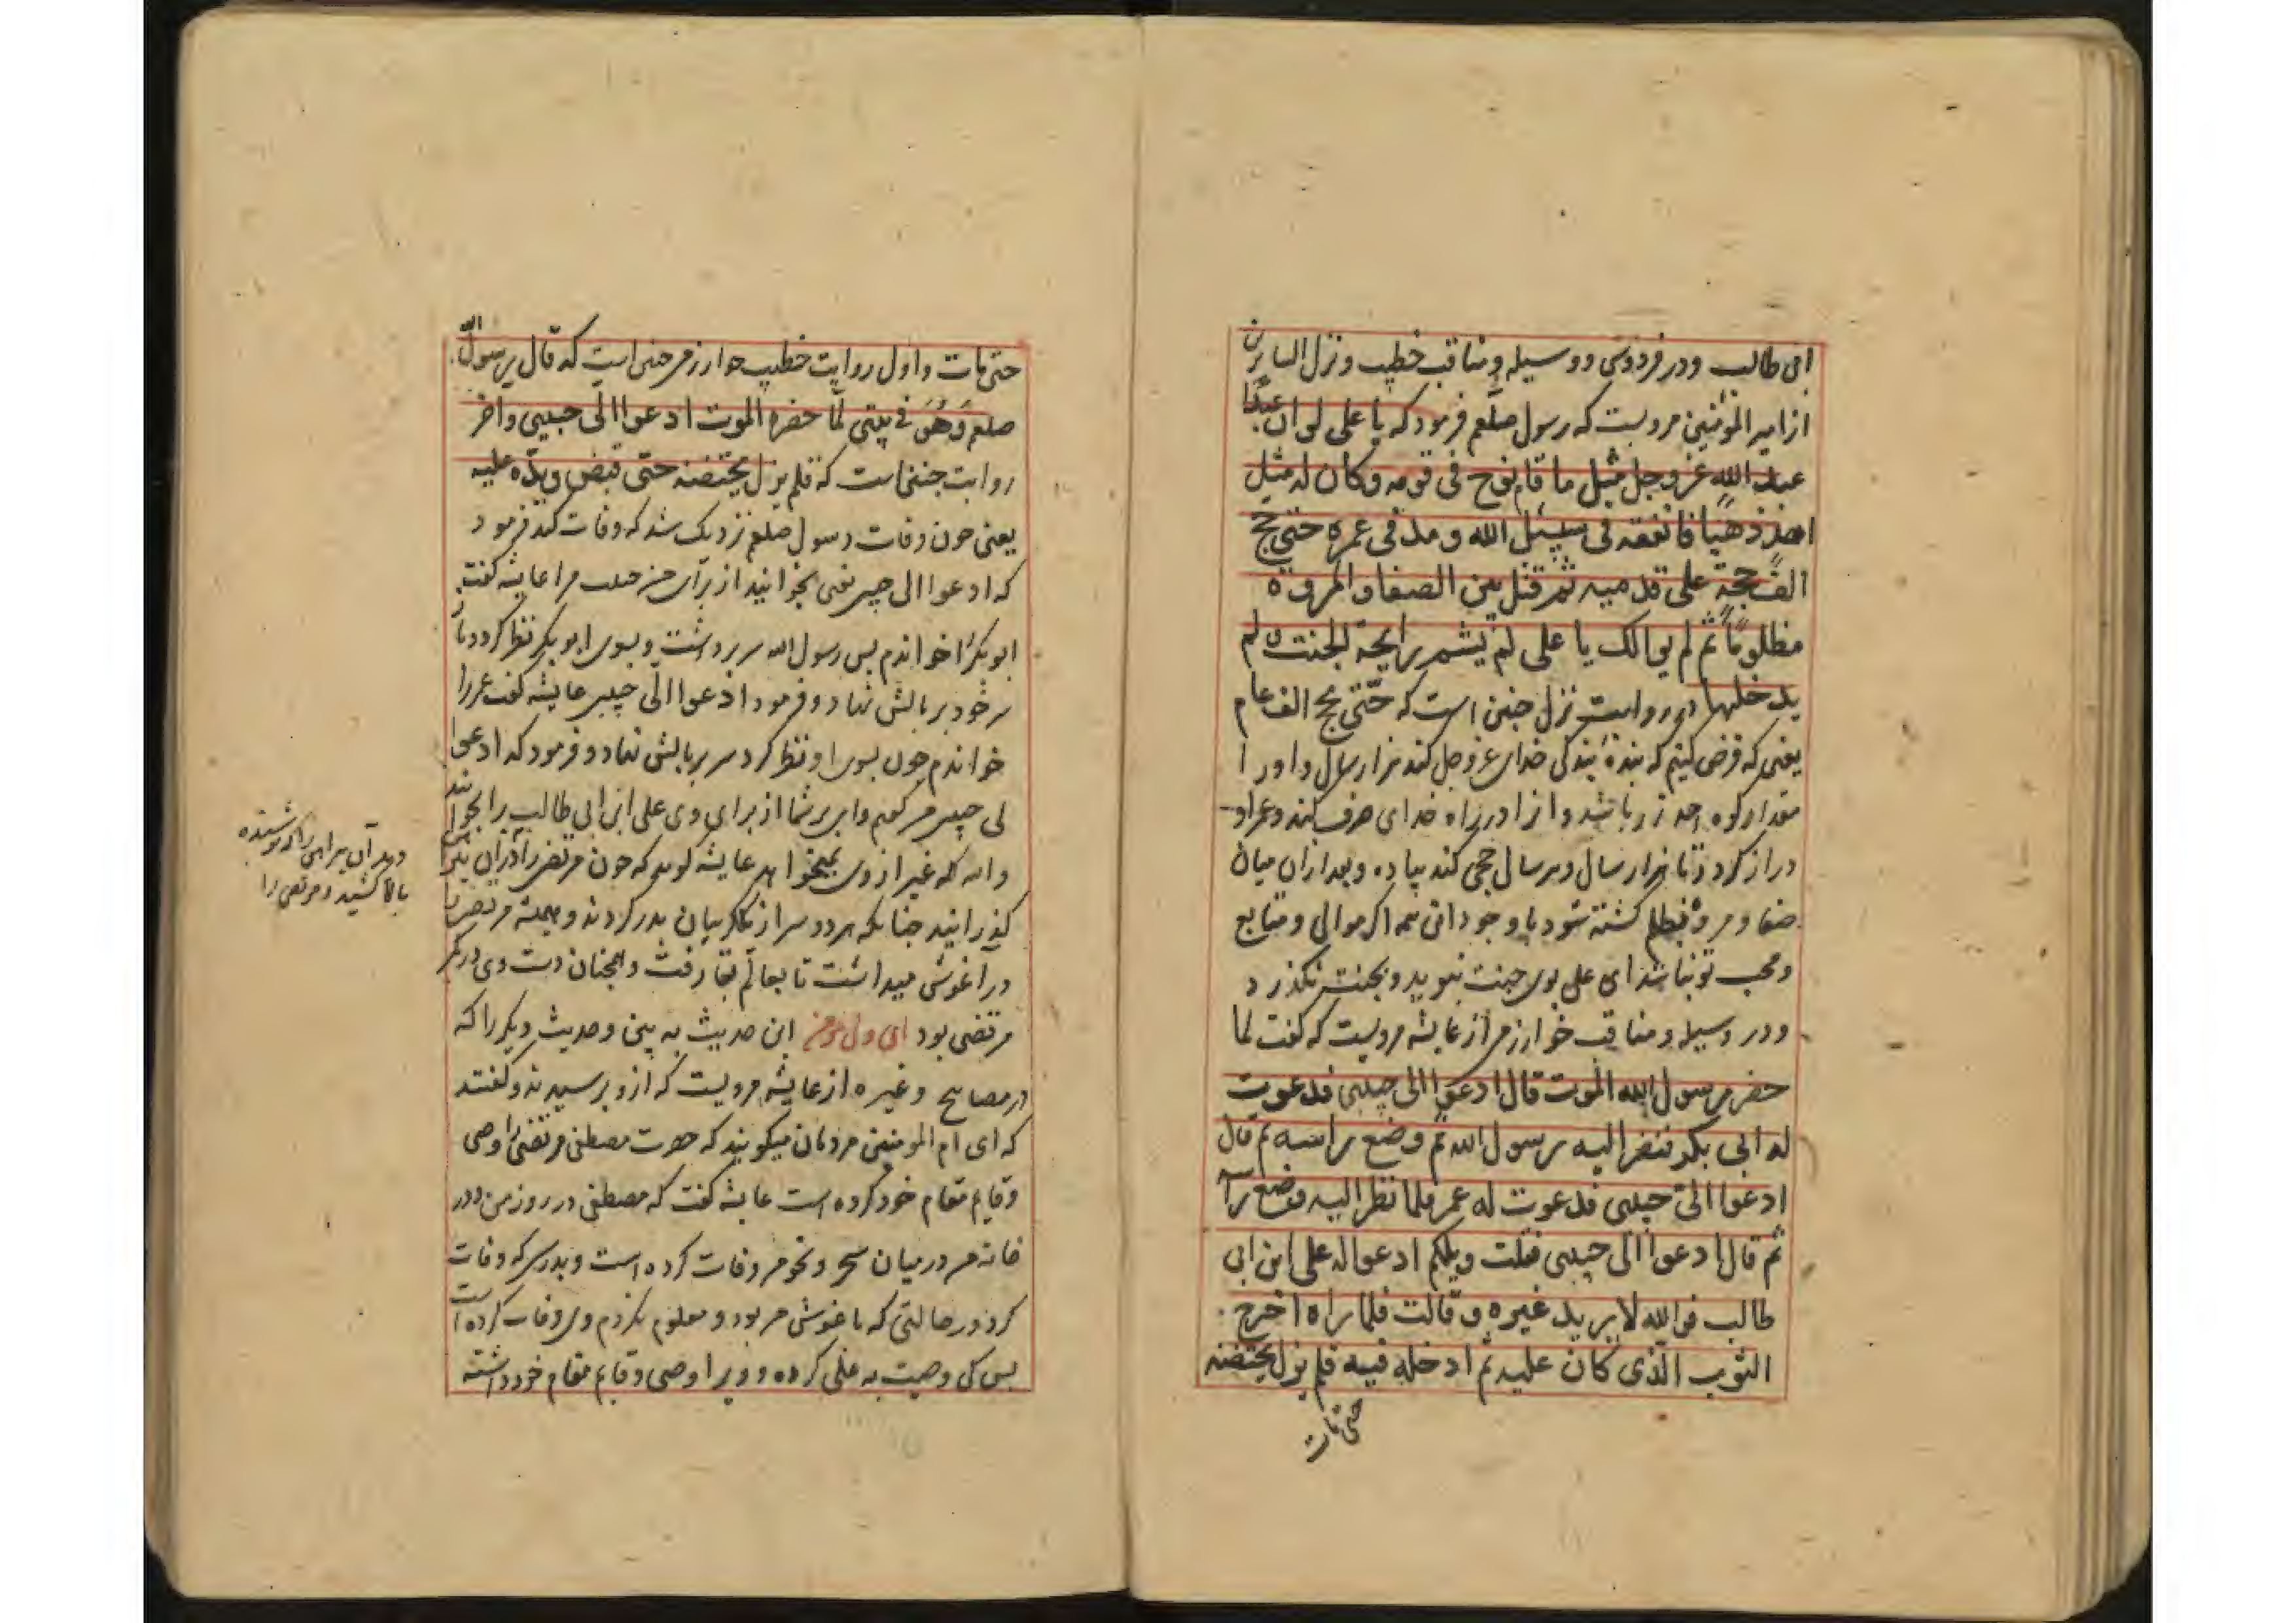 ابی طالب ودر فردوسی ووسیله ومناقب خطیب ونزل السایرین
از امیر المؤمنین مرویست که رسول صلعم فرمود که یا علی لو ان عبدا
عبد الله عز وجل مثل ما قام نوح فی قومه وکان له مثل
احد ذهبا فانفقه فی سبیل الله ومد فی عمره حتی حج
الف حجة علی قدمیه ثم قتل بین الصفا والمروة
مظلوما ثم لم یوالک یا علی لم یشم رایحة الجنت ولم
یدخلها در روایت نزل چنین است که حتی حج الف عام
یعنی که فرض کنیم که بنده بندکی خدای عز وجل کند هزار سال واورا
مقدار کوه احد زر باشد وانرا در راه خدای صرف کند وعمر او
دراز کردد تا هزار سال وهر سال حجی کند پیاده وبعد ازان میان
صفا ومروه بظلم کشته شود با وجود این همه اکر موالی ومتابع
ومحب تو نباشد ای علی بوی جنت نبوید وبجنت نکذرد
ودر وسیله ومناقب خوارزمی از عایشه مرویست که کفت لما
حضر رسول الله الموت قال ادعوا الی حبیبی فدعوت
له ابی بکر فنظر الیه رسول الله ثم وضع راسه ثم قال
ادعوا الی حبیبی فدعوت له عمر فلما نظر الیه وضع را
ثم قال ادعوا الی حبیبی فقلت ویلکم ادعوا له علی ابن ابی
طالب فوالله لا یرید غیره وقالت فلما راه اخرج
الثوب الذی کان علیه ثم ادخله فیه فلم یزل یحتضنه
حتی مات
حتی مات واول روایت خطیب خوارزمی چنین است که قال رسول الله
صلعم وهو فی بیتی لما حضره الموت ادعوا الی حبیبی واخر
روایت چنین است که فلم یزل یحتضنه حتی قبض ویده علیه
یعنی چون وفات رسول صلعم نزدیک شد که وفات کند فرمود
که ادعوا الی حبیبی یعنی بخوانید از برای من حبیب مرا عایشه کفت
ابو بکر را خواندم پس رسول الله سر برداشت وبسوی ابو بکر نظر کرد وباز
سر خود بر بالش نهاد وفرمود ادعوا الی حبیبی عایشه کفت عمر را
خواندم چون بسوی او نظر کرد سر ببالش نهاد وفرمود که ادعوا
لی حبیبی من کفتم وای بر شما از برای وی علی ابن ابی طالب را بخوانید
والله که غیر از وی نمیخواهد عایشه کوید که چون مرتضی را دران
کذرانید چنانکه هر دو سر از یک کریبان بدر کردند وهمیشه مرتضی را
در آغوش میداشت تا بعالم بقا رفت وهمچنان دست وی در کمر
مرتضی بود ای ولی مؤمن این حدیث به بین وحدیث دیکر را که
در مصابیح وغیره از عایشه مرویست که ازو پرسیدند وکفتند
که ای ام المومنین مردمان میکویند که حضرت مصطفی مرتضی را وصی
وقایم مقام خود کرده است عایشه کفت که مصطفی در روز من ودر
خانه من ودر میان سحر ونحر من وفات کرده است وبدرستی که وفات
کرد در حالتی که باغوش من بود ومعلوم نکردم وی وفات کرده است
پس کی وصیت به علی کرده وویرا وصی وقایم مقام خود داشته
بالا کشید ومرتضی را